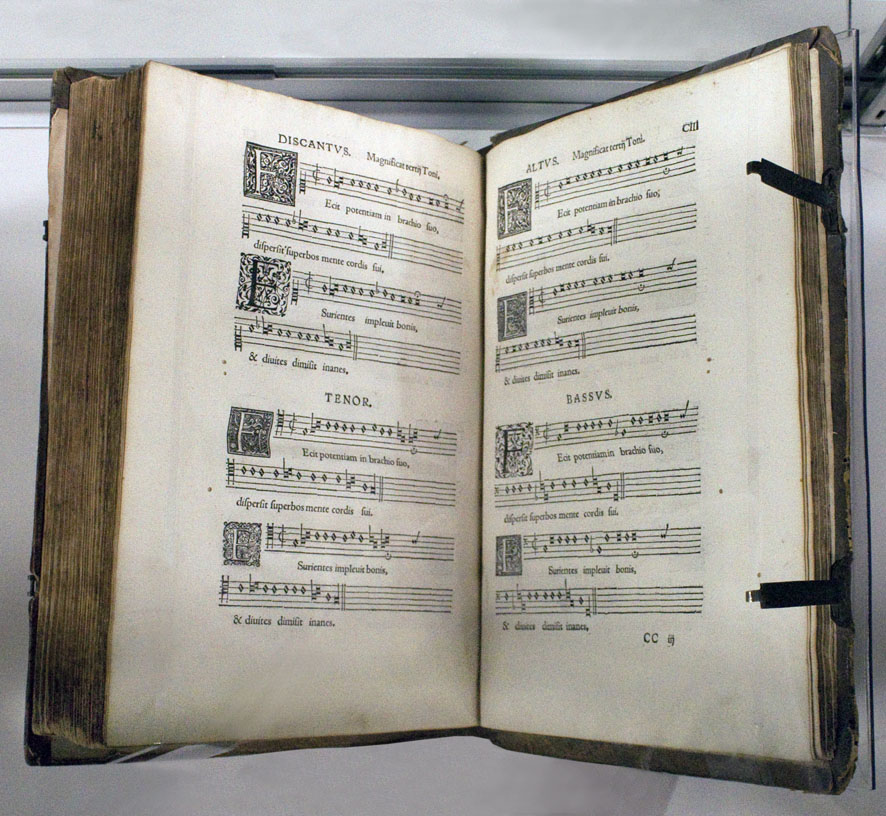 DISCANTVS. Magnificat tertij Toni,
FEcit potentiam in brachio ſuo,
diſperſit ſuperbos mente cordis ſui.
ESurientes impleuit bonis,
& diuites dimiſit inanes,
TENOR.
FEcit potentiam in brachio ſuo,
diſperſit ſuperbos mente cordis ſui.
ESurientes impleuit bonis,
& diuites dimiſit inanes.
ALTVS. Magnificat tertij Toni. CIII
FEcit potentiam in brachio ſuo,
diſperſit ſuperbos mente cordis ſui.
ESurientes impleuit bonis,
& diuites dimiſit inanes.
BASSVS.
FEcit potentiam in brachio ſuo,
diſperſit ſuperbos mente cordis ſui.
ESurientes impleuit bonis,
& diuites dimiſit inanes,
CC iij